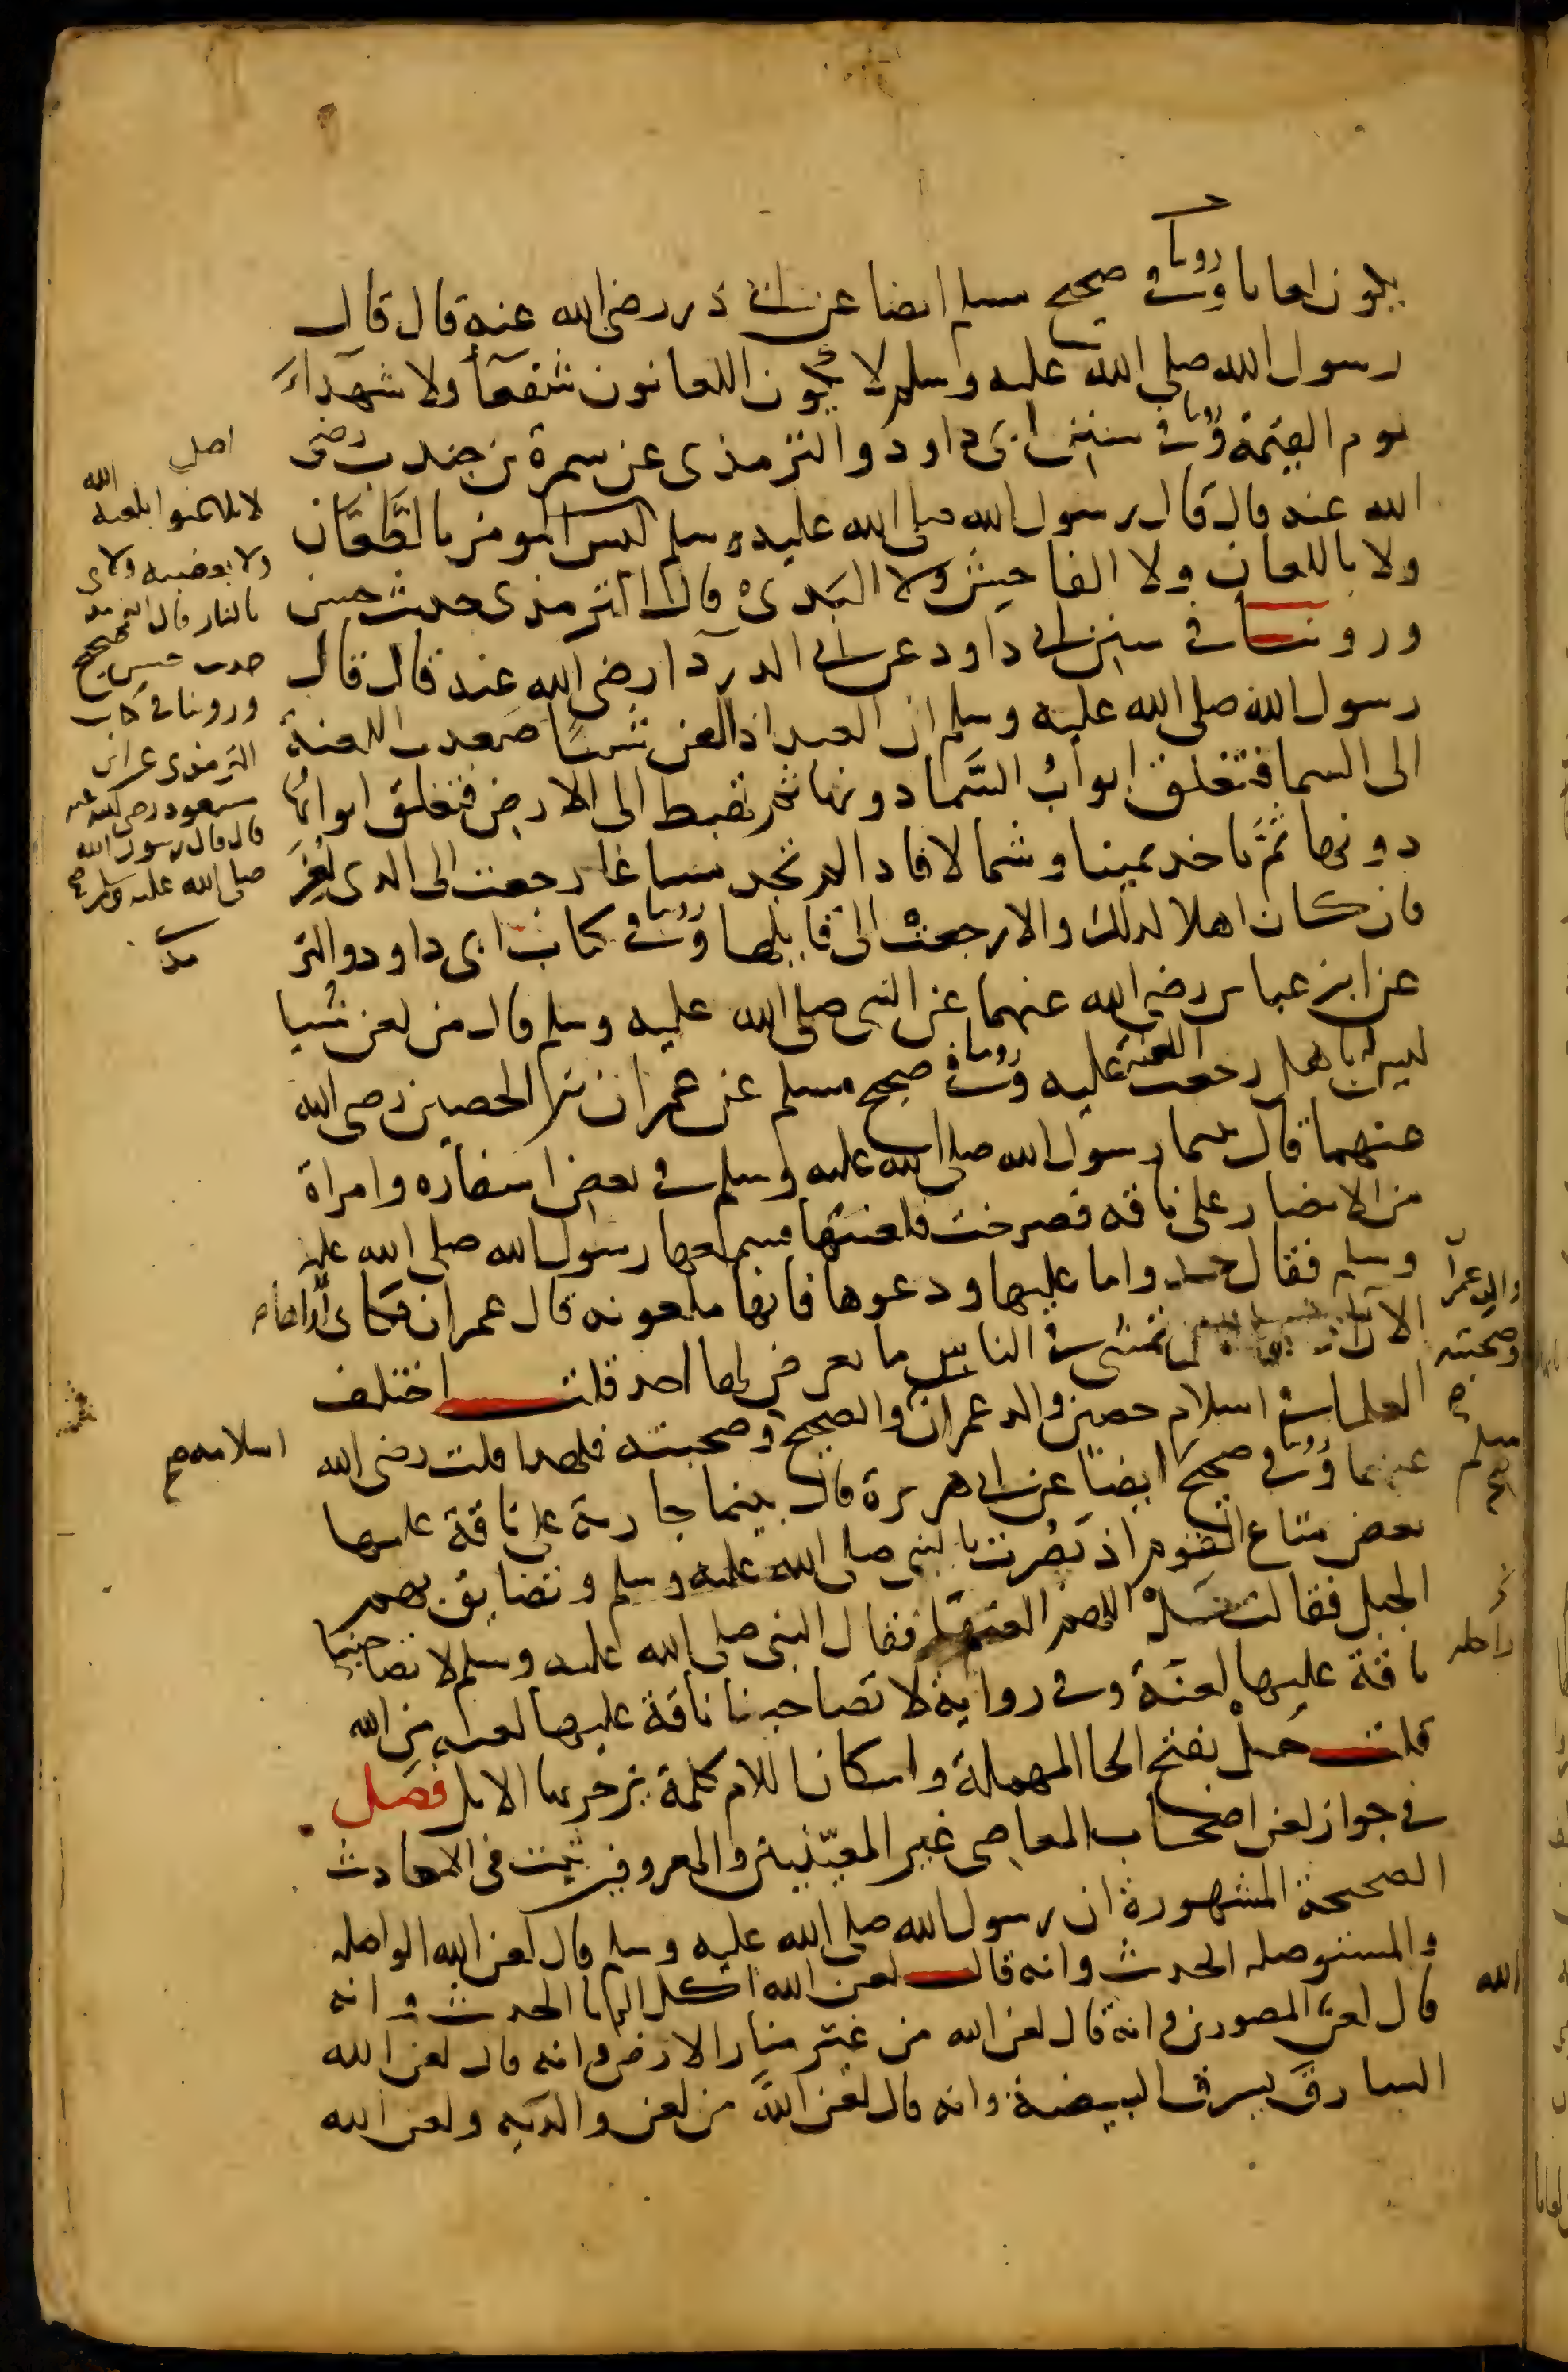 يكون لعانا وروينا في صحيح مسلم ايضا عن ابي ذر رضي الله عنه قال قال
رسول الله صلى الله عليه وسلم لا يكون اللعانون شفعآ ولا شهدآء
يوم القيمة وروينا في سنن ابي داود والترمذي عن سمرة بن جندب رضي
الله عنه قال قال رسول الله صلى الله عليه وسلم ليس المومن بالطَّعَّان
ولا باللعان ولا الفاحِش ولا البذي قال الترمذي حديث حسن
وروينا في سنن ابي داود عن ابي الدردآ رضي الله عنه قال قال
رسول الله صلى الله عليه وسلم ان العبد اذا لعن شيئًا صعدت اللعنة
الى السما فتغلق ابوابُ السَّما دونها ثم تهبط الى الارض فتغلق ابوابُها
دونها ثمَّ تاخذ يمينا وشمالا فاذا لم تجد مساغا رجعت الى الذي لُعِنَ
فان كان اهلا لذلك والا رجعتْ الى قايلها وروينا في كتاب ابي داود والتر
عن ابن عباس رضي الله عنهما عن النبي صلى الله عليه وسلم قال من لعن شيا
ليس له باهل رجعت اللعنة عليه وروينا في صحيح مسلم عن عمران بن الحصين رضي الله
عنهما قال بينما رسول الله صلى الله عليه وسلم في بعض اسفاره وامراة
من الانصار على ناقه فضجرت فلعنتها فسمعها رسول الله صلى الله عليه
وسلم فقال خذوا ما عليها ودعوها فانها ملعونه قال عمران فكاني أراها
الان تمشي في الناس ما يعرض لها احد قلت اختلف
العلما في اسلام حصين والد عمران والصحيح وصحبته فلهذا قلت رضي الله
عنهما وروينا في صحيح ايضًا عن ابي هريرة قال بينما جارية على ناقة عليها
بعض متاع القوم اذ بَصُرت بالنبي صلى الله عليه وسلم وتضايق بهم
الجبل فقالت حَلْ اللهم العنها فقال النبي صلى الله عليه وسلم لا تصاحبنا
ناقة عليها لعنَة وفي رواية لا تصاحبنا ناقة عليها لعنه من الله
قلت حَلْ بفتح الحا المهملة واسكان اللام كلمة يزجر بها الابل فصل
في جواز لعن اصحاب المعاصي غير المعيّنين والمعروفين ثبت في الاحاديث
الصحيحة المشهورة ان رسول الله صلى الله عليه وسلم قال لعن الله الواصله
والمستوصله الحديث وانه قال لعن الله اكل الربا الحديث وانه
قال لعن المصورين وانه قال لعن الله من غيّر منار الارض وانه قال لعن الله
السارق يسرق البيضة وانه قال لعن الله من لعن والديه ولعن الله
اصل
لا تلاعنوا بلعنة الله
ولا بغضبه ولا
بالنار قال الترمذي
حديث حسن صحيح
وروينا في كتاب
الترمذي عن ابن
مسعود رضي الله عنه
قال قال رسول الله
صلى الله عليه وسلم صح
اسلامه صح
والد عمران
وصحبته
مسلم
صح
الله